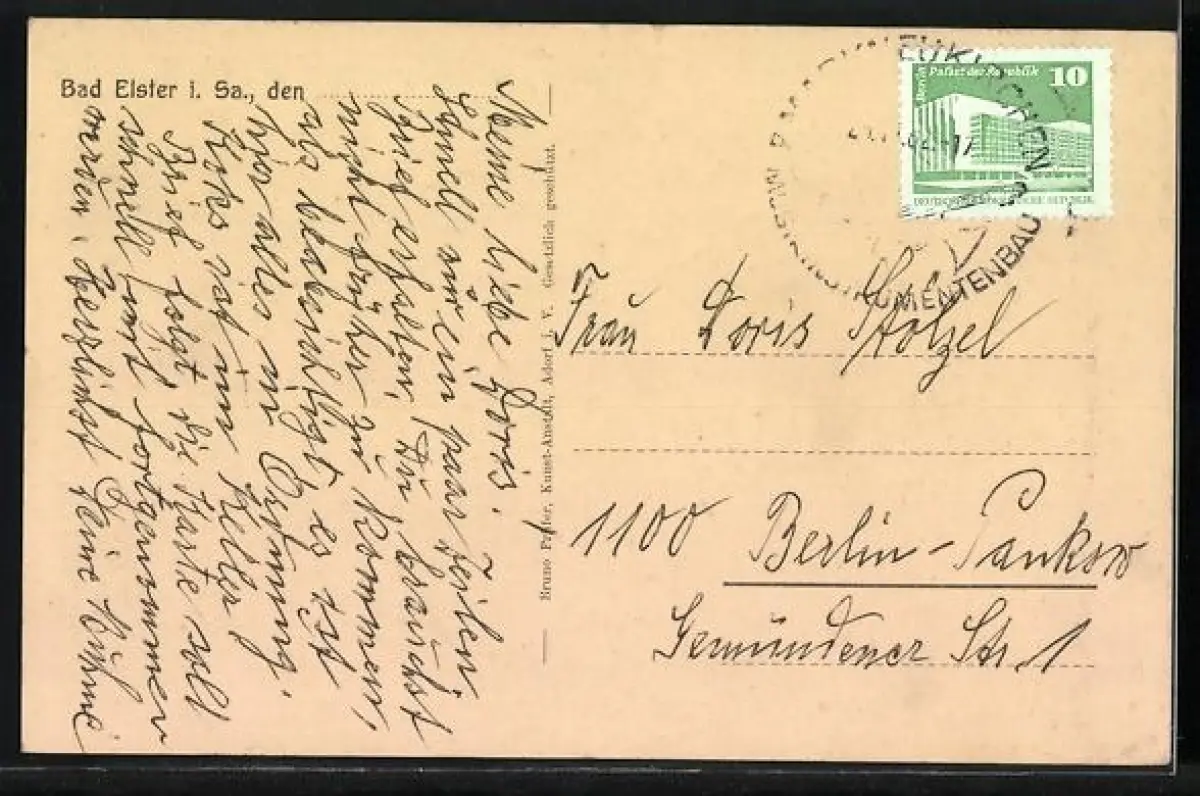 Bad Elster i. Sa., den
Meine liebe Doris.
Schnell nur ein paar Zeilen.
Brief erhalten, Du brauchst
nicht früher zu kommen,
als beabsichtigt es ist
hier alles in Ordnung.
Koks ist im Keller
Brief folgt die Karte soll
schnell mit fortgenommen
werden. Herzlichst Deine
Bruno Kunst-Anstalt, Adorf i. V. Gesetzlich geschützt.
Berlin Palast der Republik 10
DEUTSCHE DEMOKRATISCHE REPUBLIK
Frau Doris Stölzel
1100 Berlin-Pankow
Gemündener Str. 1